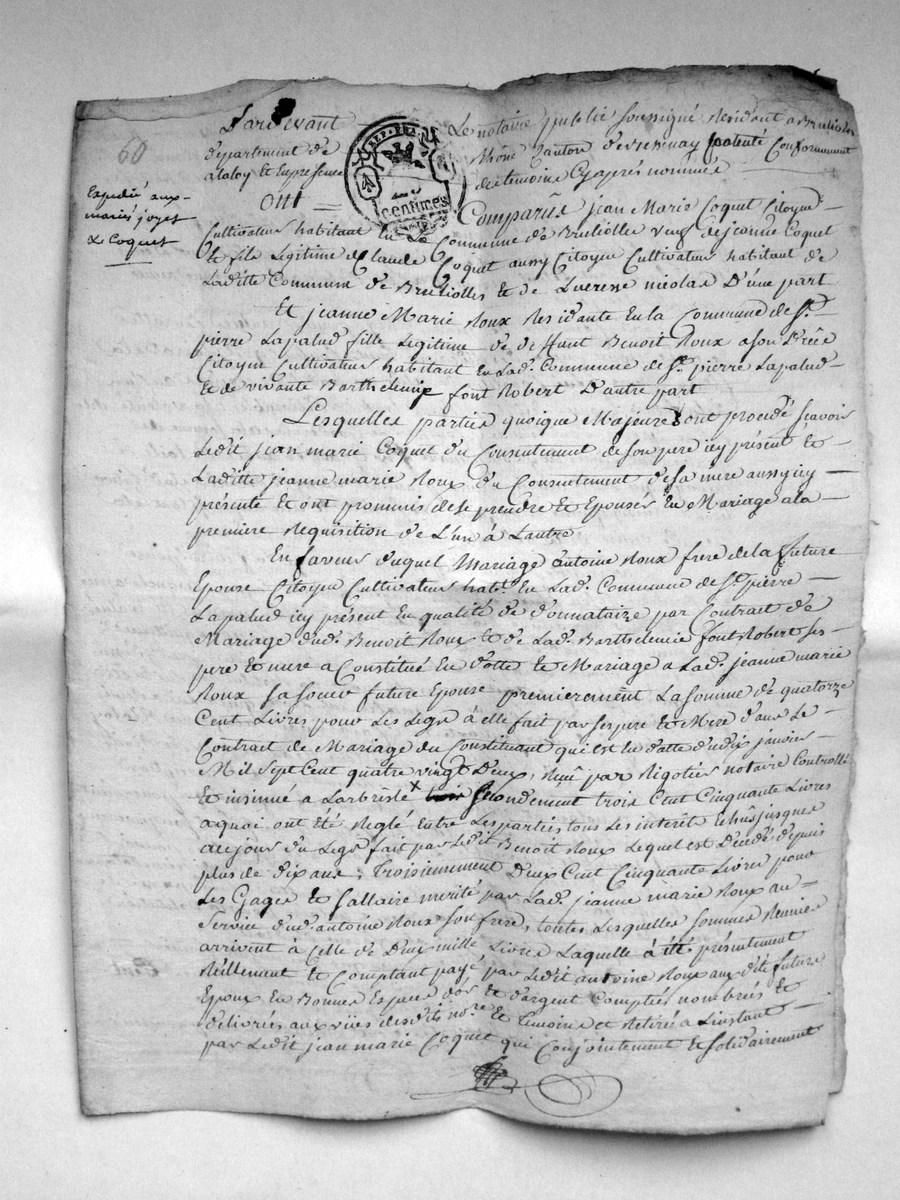 60
Expedié aux
mariés joyet
& Coquet
REP. FRA
centimes
Pardevant Le notaire public soussigné Résident a Brulioles
département de Rhône Canton de vessenay patenté Conformement
alaloy Et enpresence des temoins Cyaprés nommés
ONT Comparûs jean Marie Coquet Citoyen
Cultivateur habitant En la Commune de Brulliolle veuf de jeanne Coquet
Et fils Legitime de Claude Coquet aussy Citoyen Cultivateur habitant de
Laditte Commune de Brulliolles Et de Lucresse nicolas D'une part
Et jeanne Marie Roux Residante En la Commune de St.
pierre Lapalud fille Legitime de deffunt Benoit Roux a son Décé
Citoyen Cultivateur habitant En Lad. Commune de St. pierre Lapalud
Et de vivante Barthelemie font Robert D'autre part
Lesquelles parties quoique Majeures ont procédé scavoir
Ledit jean marie Coquet du Consentement de son pere icy présent Et
Laditte jeanne marie Roux du Consentement de sa mere aussy icy
présente Et ont prommis de se prendre Et Epouser En Mariage a la
premiere Requisition de L'un à Lautre
En faveur duquel Mariage Antoine Roux frere de la future
Epouse Citoyen Cultivateur habt. En Lad. Commune de St. pierre
Lapalud icy présent En qualité de donnataire par Contract de
Mariage dud. Benoit Roux Et de Lad. Barthelemie font Robert ses
pere Et mere a Constitué En dotte Et Mariage a Lad. jeanne marie
Roux sa soeur future Epouse premierement La somme de quatorze
Cent Livres pour Les Legs à elle fait par ses pere Et Mere dans Le
Contract de Mariage du Constituant qui est En datte du dix janvier
Mil sept Cent quatre vingt Deux, Reçû par Rigotier notaire Controllé
Et insinué a Larbresle x secondement trois Cent Cinquante Livres
a quoi ont été Reglé Entre Les parties tous Les interêt Echûs jusques
au jour du Legs fait par Ledit Benoit Roux Lequel est Décédé depuis
plus de dix ans; Troisiemement Deux Cent Cinquante Livres pour
Les Gages Et sallaire merité par Lad. jeanne marie Roux au
Service dud. antoine Roux son frere, toutes Lesquelles sommes Reunies
arrivent à Celle de Deux mille Livres Laquelle à été présentement
Réellement Et Comptant payé par Ledit antoine Roux aux dits future
Epoux En Bonnes Especes d'or Et d'argent Comptés nombrés Et
délivrés aux vües desdits nore. Et temoins et Retirés a L'instant
par Ledit jean marie Coquet qui Conjointement Et solidairement